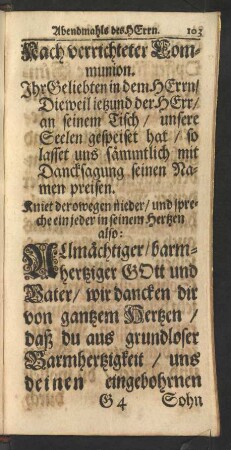 Abendmahls des HErrn. 103
Nach verrichteter Com-
munion.
Ihr Geliebten in dem HErrn/
Dieweil ietzund der HErr/
an seinem Tisch / unsere
Seelen gespeiset hat / so
lasset uns sämmtlich mit
Dancksagung seinen Na-
men preisen.
Kniet derowegen nieder/ und spre-
che ein jeder in seinem Hertzen
also:
ALlmächtiger/ barm-
hertziger GOtt und
Vater/ wir dancken dir
von gantzem Hertzen /
daß du aus grundloser
Barmhertzigkeit / uns
deinen eingebohrnen
G 4 Sohn